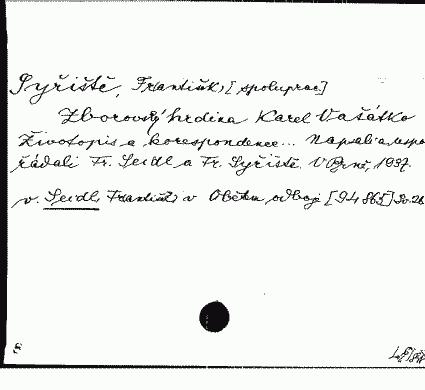 Syřiště, František, [spoluprac]
Zborovský hrdina Karel Vašátko
Životopis a korespondence... Napsali a uspo
řádali Fr. Seidl a Fr. Syřiště. V Brně, 1937.
v. Seidl, František v Obětem odboje [94865] Sv. 26
8